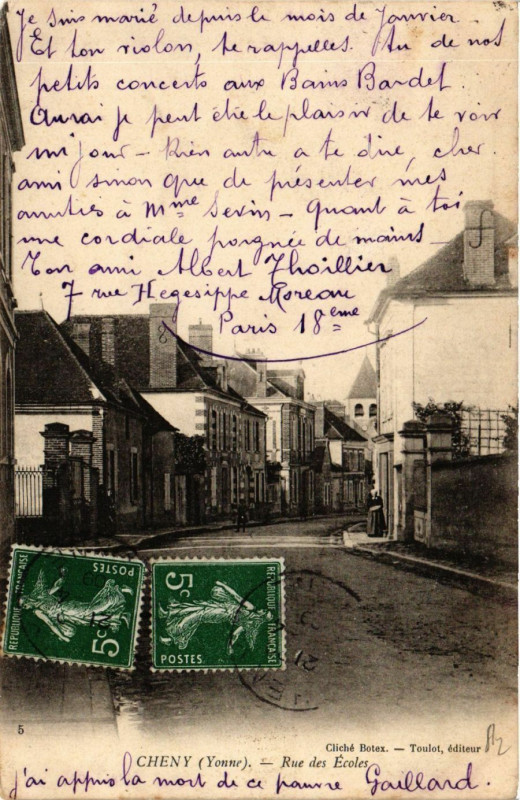 Je suis marié depuis le mois de Janvier.
Et ton violon, te rappelles. tu de nos
petits concerts aux Bains Bardet.
Aurai je peut être le plaisir de te voir
un jour — Rien autre a te dire, cher.
ami sinon que de présenter mes
amitiés à Mme Serin — Quant à toi
une cordiale poignée de mains —
Ton ami Albert Thoillier
7 rue Hegesippe Moreau
Paris 18ème
REPUBLIQUE FRANÇAISE
5c
POSTES
5c
REPUBLIQUE FRANÇAISE
POSTES
5
Cliché Botex. — Toulot, éditeur
CHENY (Yonne). — Rue des Écoles
j'ai appris la mort de ce pauvre Gaillard.